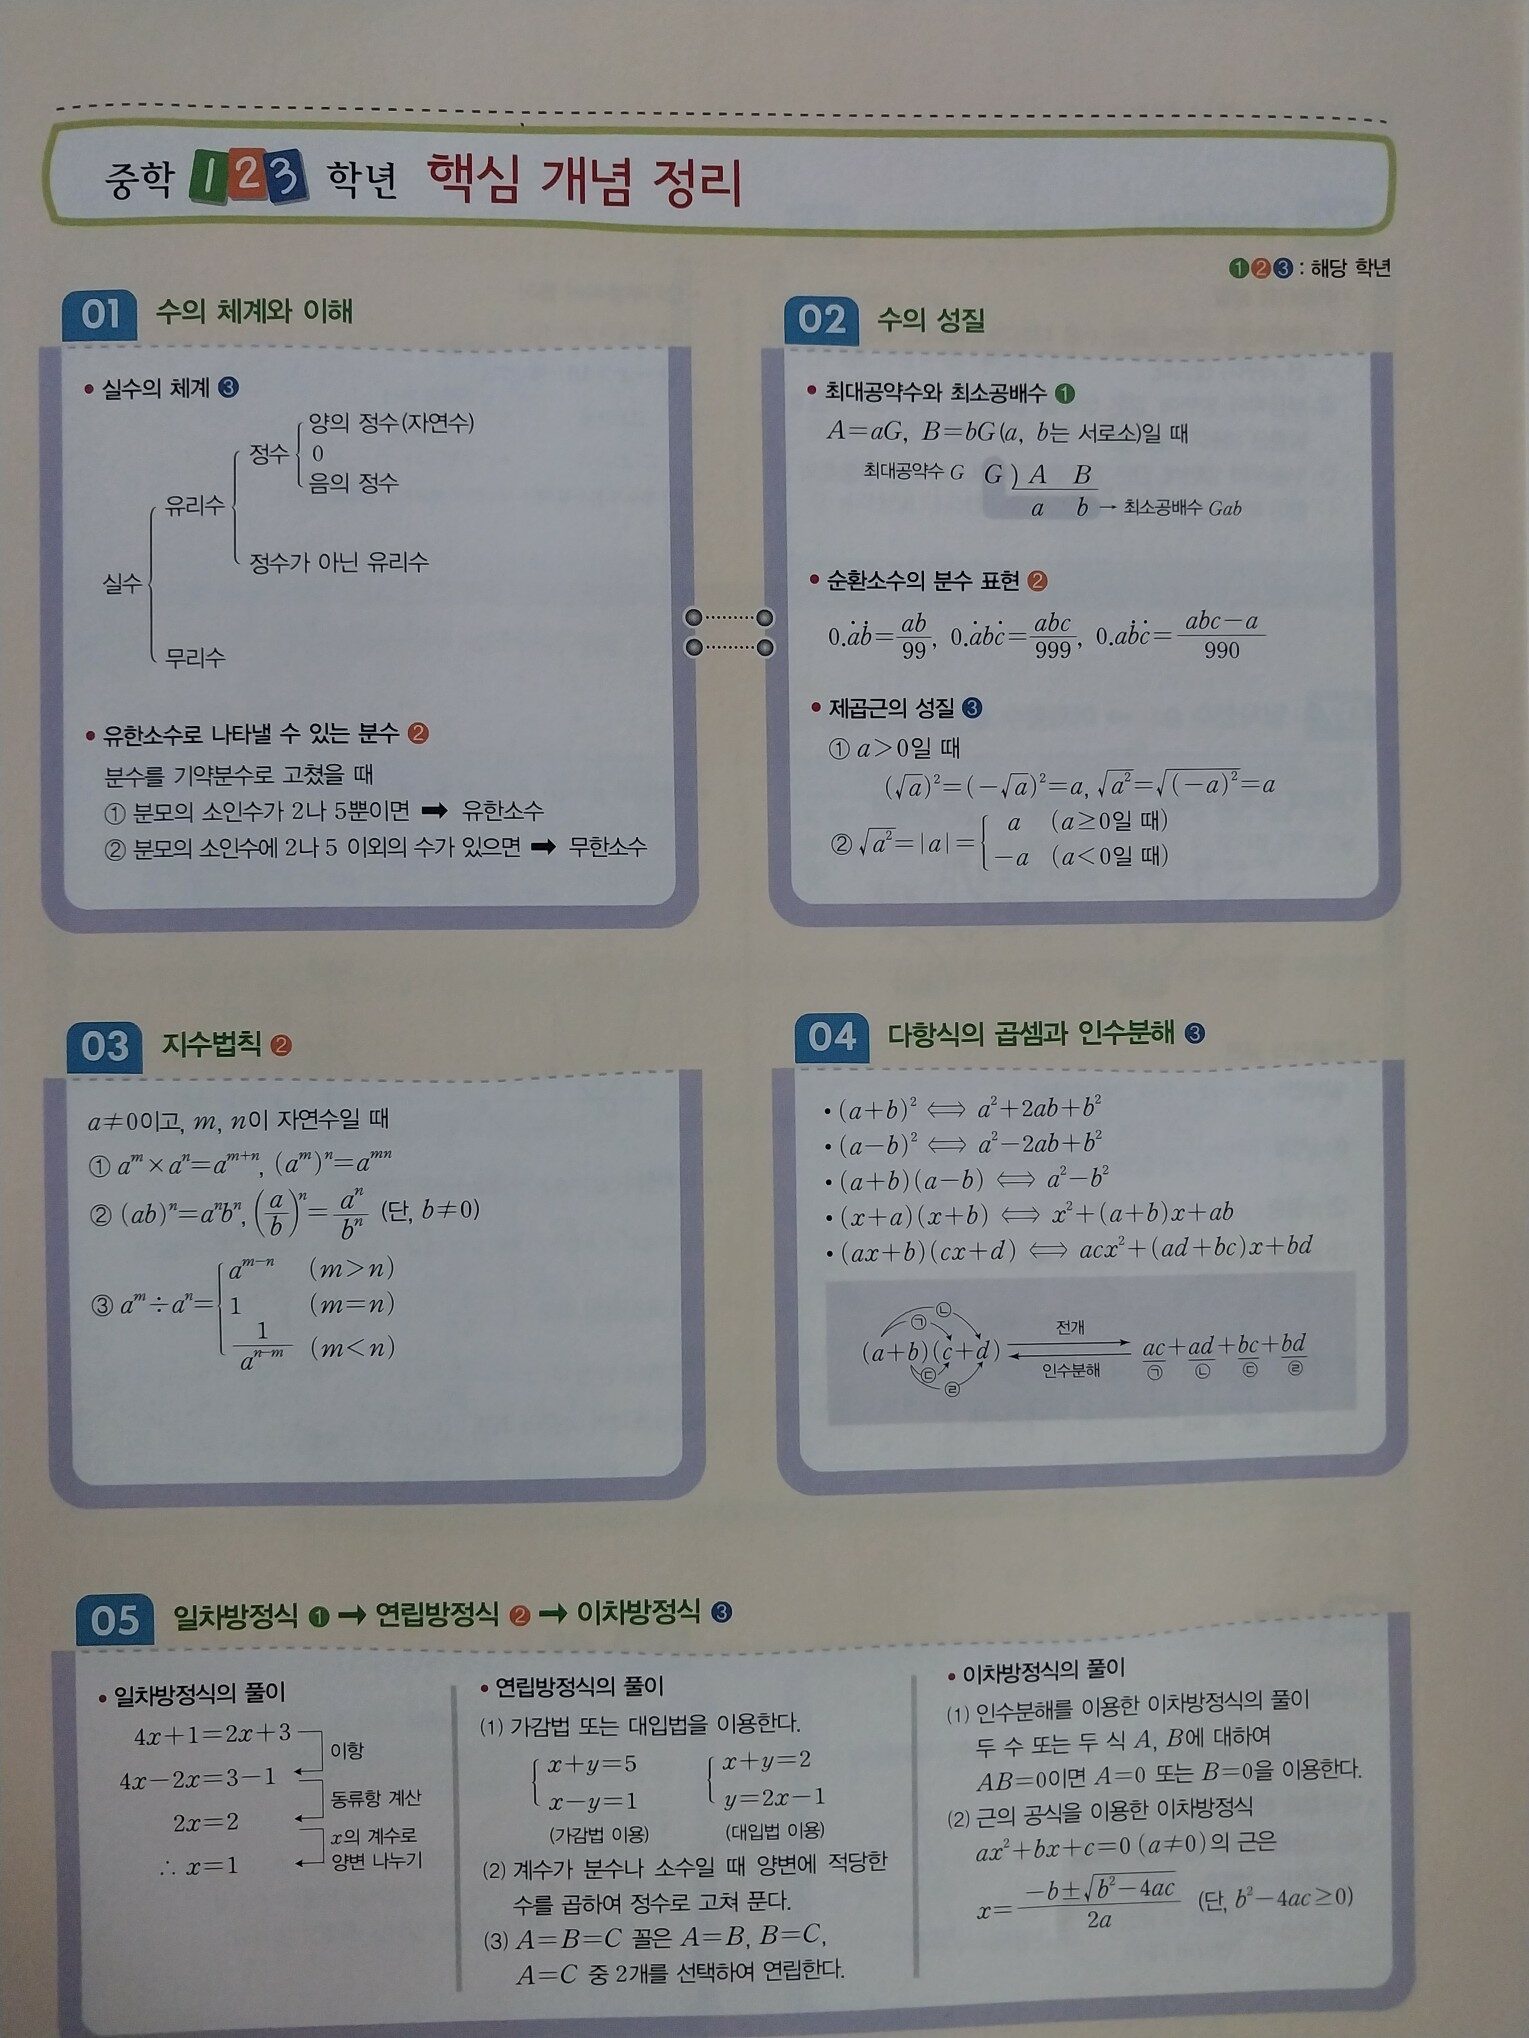 중학 1 2 3 학년 핵심 개념 정리
❶❷❸ : 해당 학년
01 수의 체계와 이해
• 실수의 체계 ❸
양의 정수(자연수)
정수
0
음의 정수
유리수
정수가 아닌 유리수
실수
무리수
• 유한소수로 나타낼 수 있는 분수 ❷
분수를 기약분수로 고쳤을 때
① 분모의 소인수가 2나 5뿐이면 ➡ 유한소수
② 분모의 소인수에 2나 5 이외의 수가 있으면 ➡ 무한소수
02 수의 성질
• 최대공약수와 최소공배수 ❶
A=aG, B=bG(a, b는 서로소)일 때
최대공약수 G G ) A B
a b → 최소공배수 Gab
• 순환소수의 분수 표현 ❷
0.ȧḃ=ab/99, 0.ȧbċ=abc/999, 0.aḃċ=(abc-a)/990
• 제곱근의 성질 ❸
① a>0일 때
(√a)²=(-√a)²=a, √a²=√(-a)²=a
② √a²=|a|={ a (a≥0일 때)
-a (a<0일 때)
03 지수법칙 ❷
a≠0이고, m, n이 자연수일 때
① aᵐ×aⁿ=aᵐ⁺ⁿ, (aᵐ)ⁿ=aᵐⁿ
② (ab)ⁿ=aⁿbⁿ, (a/b)ⁿ=aⁿ/bⁿ (단, b≠0)
③ aᵐ÷aⁿ={ aᵐ⁻ⁿ (m>n)
1 (m=n)
1/aⁿ⁻ᵐ (m<n)
04 다항식의 곱셈과 인수분해 ❸
• (a+b)² ⟺ a²+2ab+b²
• (a-b)² ⟺ a²-2ab+b²
• (a+b)(a-b) ⟺ a²-b²
• (x+a)(x+b) ⟺ x²+(a+b)x+ab
• (ax+b)(cx+d) ⟺ acx²+(ad+bc)x+bd
㉡
㉠
전개
(a+b)(c+d) ac+ad+bc+bd
인수분해
㉢ ㉠ ㉡ ㉢ ㉣
㉣
05 일차방정식 ❶ ➡ 연립방정식 ❷ ➡ 이차방정식 ❸
• 일차방정식의 풀이
4x+1=2x+3
이항
4x-2x=3-1
동류항 계산
2x=2
x의 계수로
양변 나누기
∴ x=1
• 연립방정식의 풀이
(1) 가감법 또는 대입법을 이용한다.
{ x+y=5 { x+y=2
x-y=1 y=2x-1
(가감법 이용) (대입법 이용)
(2) 계수가 분수나 소수일 때 양변에 적당한
수를 곱하여 정수로 고쳐 푼다.
(3) A=B=C 꼴은 A=B, B=C,
A=C 중 2개를 선택하여 연립한다.
• 이차방정식의 풀이
(1) 인수분해를 이용한 이차방정식의 풀이
두 수 또는 두 식 A, B에 대하여
AB=0이면 A=0 또는 B=0을 이용한다.
(2) 근의 공식을 이용한 이차방정식
ax²+bx+c=0 (a≠0)의 근은
x=(-b±√(b²-4ac))/2a (단, b²-4ac≥0)